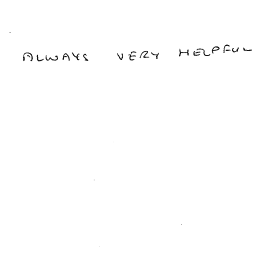 ALWAYS VERY HELPFUL